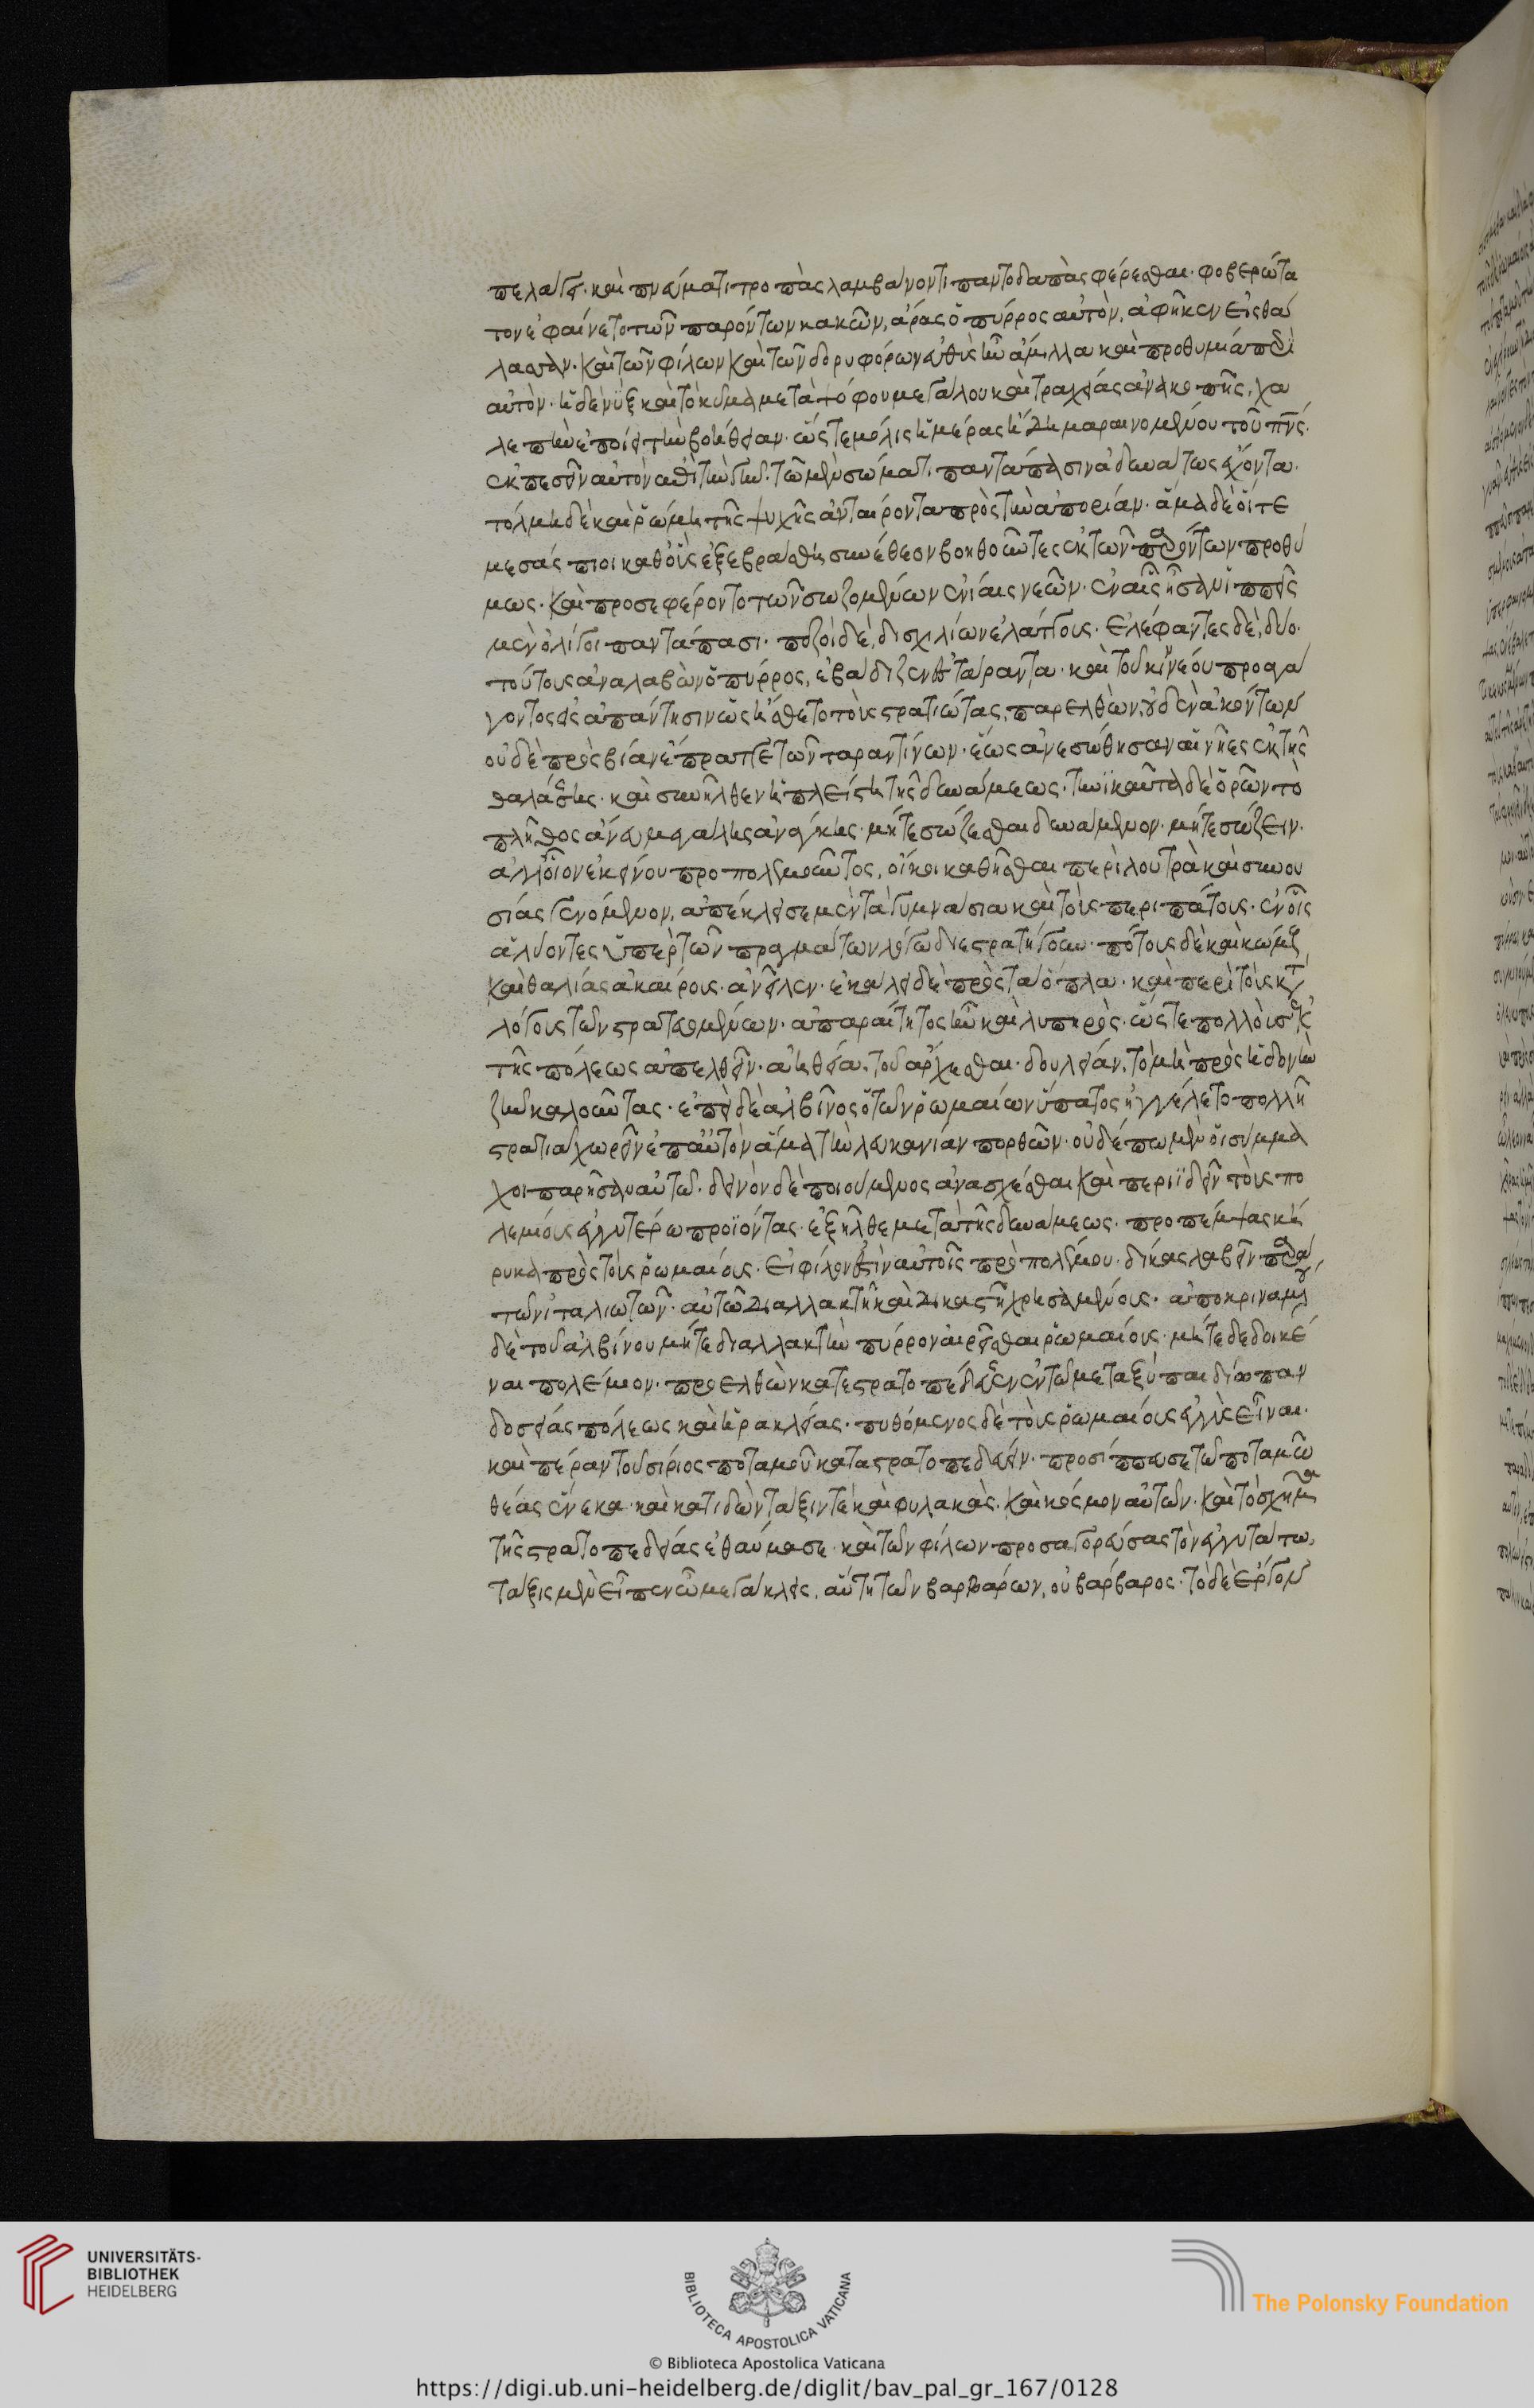 πελάγει· καὶ πνεύματι τροπὰς λαμβάνοντι παντοδαπὰς φέρεσθαι· φοβερώτα
τον ἐφαίνετο τῶν παρόντων κακῶν, ἄρας ὁ πύρρος αὑτὸν, ἀφῆκεν εἰς θά
λασσαν· καὶ τῶν φίλων καὶ τῶν δορυφόρων εὐθὺς ἦν ἅμιλλα καὶ προθυμία περὶ
αὐτὸν· ἡ δὲ νὺξ καὶ τὸ κῦμα μετὰ ψόφου μεγάλου καὶ τραχείας ἀνακοπῆς, χα
λεπὴν ἐποίει τὴν βοήθειαν· ὥστε μόλις ἡμέρας ἤδη μαραινομένου τοῦ πνς·
ἐκπεσεῖν αὐτὸν ἐπὶ τὴν γῆν· τῷ μὲν σώματι παντάπασιν ἀδυνάτως ἔχοντα·
τόλμῃ δὲ καὶ ῥώμῃ τῆς ψυχῆς ἀνταίροντα πρὸς τὴν ἀπορίαν· ἅμα δὲ οἵ τε
μεσάπιοι καθ' οὓς ἐξεβράσθη συνέθεον βοηθοῦντες ἐκ τῶν παρόντων προθύ
μως· καὶ προσεφέροντο τῶν σωζομένων ἔνιαι νεῶν· ἐν αἷς ἦσαν ἱππεῖς
μὲν ὀλίγοι παντάπασι· πεζοὶ δὲ, δισχιλίων ἐλάττους· ἐλέφαντες δὲ, δύο·
τούτους ἀναλαβὼν ὁ πύρρος, ἐβάδιζεν εἰς τάραντα· καὶ τοῦ κινέου προαγα
γόντος εἰς ἀπάντησιν ὡς ᾔσθετο τοὺς στρατιώτας, παρελθὼν, οὐδὲν ἀκόντων
οὐδὲ πρὸς βίαν ἔπραττε τῶν ταραντίνων· ἕως ἀνεσώθησαν αἱ νῆες ἐκ τῆς
θαλάσσης· καὶ συνῆλθεν ἡ πλείστη τῆς δυνάμεως· τηνικαῦτα δὲ ὁρῶν τὸ
πλῆθος ἄνευ μεγάλης ἀνάγκης· μήτε σώζεσθαι δυνάμενον· μήτε σώζειν·
ἀλλ' οἷον ἐκείνου προπολεμοῦντος, οἴκοι καθῆσθαι περὶ λουτρὰ καὶ συνου
σίας γενόμενον, ἀπέκλεισε μὲν τὰ γυμνάσια καὶ τοὺς περιπάτους· ἐν οἷς
ἀλύοντες ὑπὲρ τῶν πραγμάτων λόγῳ διεστρατήγουν· πότους δὲ καὶ κώμους
καὶ θαλίας ἀκαίρους· ἀνεῖλεν· ἐκάλει δὲ πρὸς τὰ ὅπλα· καὶ περὶ τοὺς κτ
λόγους τῶν στρατευομένων· ἀπαραίτητος ἦν καὶ λυπηρὸς· ὥστε πολλοὺς ἐκ
τῆς πόλεως ἀπελθεῖν· ἀηθείᾳ τοῦ ἄρχεσθαι· δουλείαν, τὸ μὴ πρὸς ἡδονὴν
ζῆν καλοῦντας· ἐπεὶ δὲ ἀλβῖνος ὁ τῶν ῥωμαίων ὕπατος ἠγγέλετο πολλῇ
στρατιᾷ χωρεῖν ἐπ' αὐτὸν ἅμα τὴν λευκανίαν πορθῶν· οὐδέπω μὲν οἱ σύμμα
χοι παρῆσαν αὐτῷ· δεινὸν δὲ ποιούμενος ἀνασχέσθαι καὶ περιϊδεῖν τοὺς πο
λεμίους ἐγγυτέρω προϊόντας· ἐξῆλθε μετὰ τῆς δυνάμεως· προπέμψας κή
ρυκα πρὸς τοὺς ῥωμαίους· εἰ φίλον ἐστὶν αὐτοῖς πρὸ πολέμου· δίκας λαβεῖν παρὰ
τῶν ἰταλιωτῶν· αὐτῷ διαλλακτῇ καὶ δικαστῇ χρησαμένοις· ἀποκριναμένου
δὲ τοῦ ἀλβίνου μήτε διαλλακτὴν πύρρον αἱρεῖσθαι ῥωμαίους· μήτε δεδοικέ
ναι πολέμιον· προελθὼν κατεστρατοπέδευσεν ἐν τῷ μεταξὺ πεδίῳ παν
δοσείας πόλεως καὶ ἡρακλείας· πυθόμενος δὲ τοὺς ῥωμαίους ἐγγὺς εἶναι·
καὶ πέραν τοῦ σίριος ποταμοῦ καταστρατοπεδεύειν· προσίππευσε τῷ ποταμῷ
θέας ἕνεκα· καὶ κατιδὼν τάξιν τε καὶ φυλακὰς· καὶ κόσμον αὐτῶν· καὶ τὸ σχῆμα
τῆς στρατοπεδείας ἐθαύμασε· καὶ τῶν φίλων προσαγορεύσας τὸν ἐγγυτάτω,
τάξις μὲν εἶπεν ὦ μεγάκλεις, αὕτη τῶν βαρβάρων, οὐ βάρβαρος· τὸ δὲ ἔργον
UNIVERSITÄTS-
BIBLIOTHEK
HEIDELBERG
BIBLIOTECA APOSTOLICA VATICANA
The Polonsky Foundation
© Biblioteca Apostolica Vaticana
https://digi.ub.uni-heidelberg.de/diglit/bav_pal_gr_167/0128